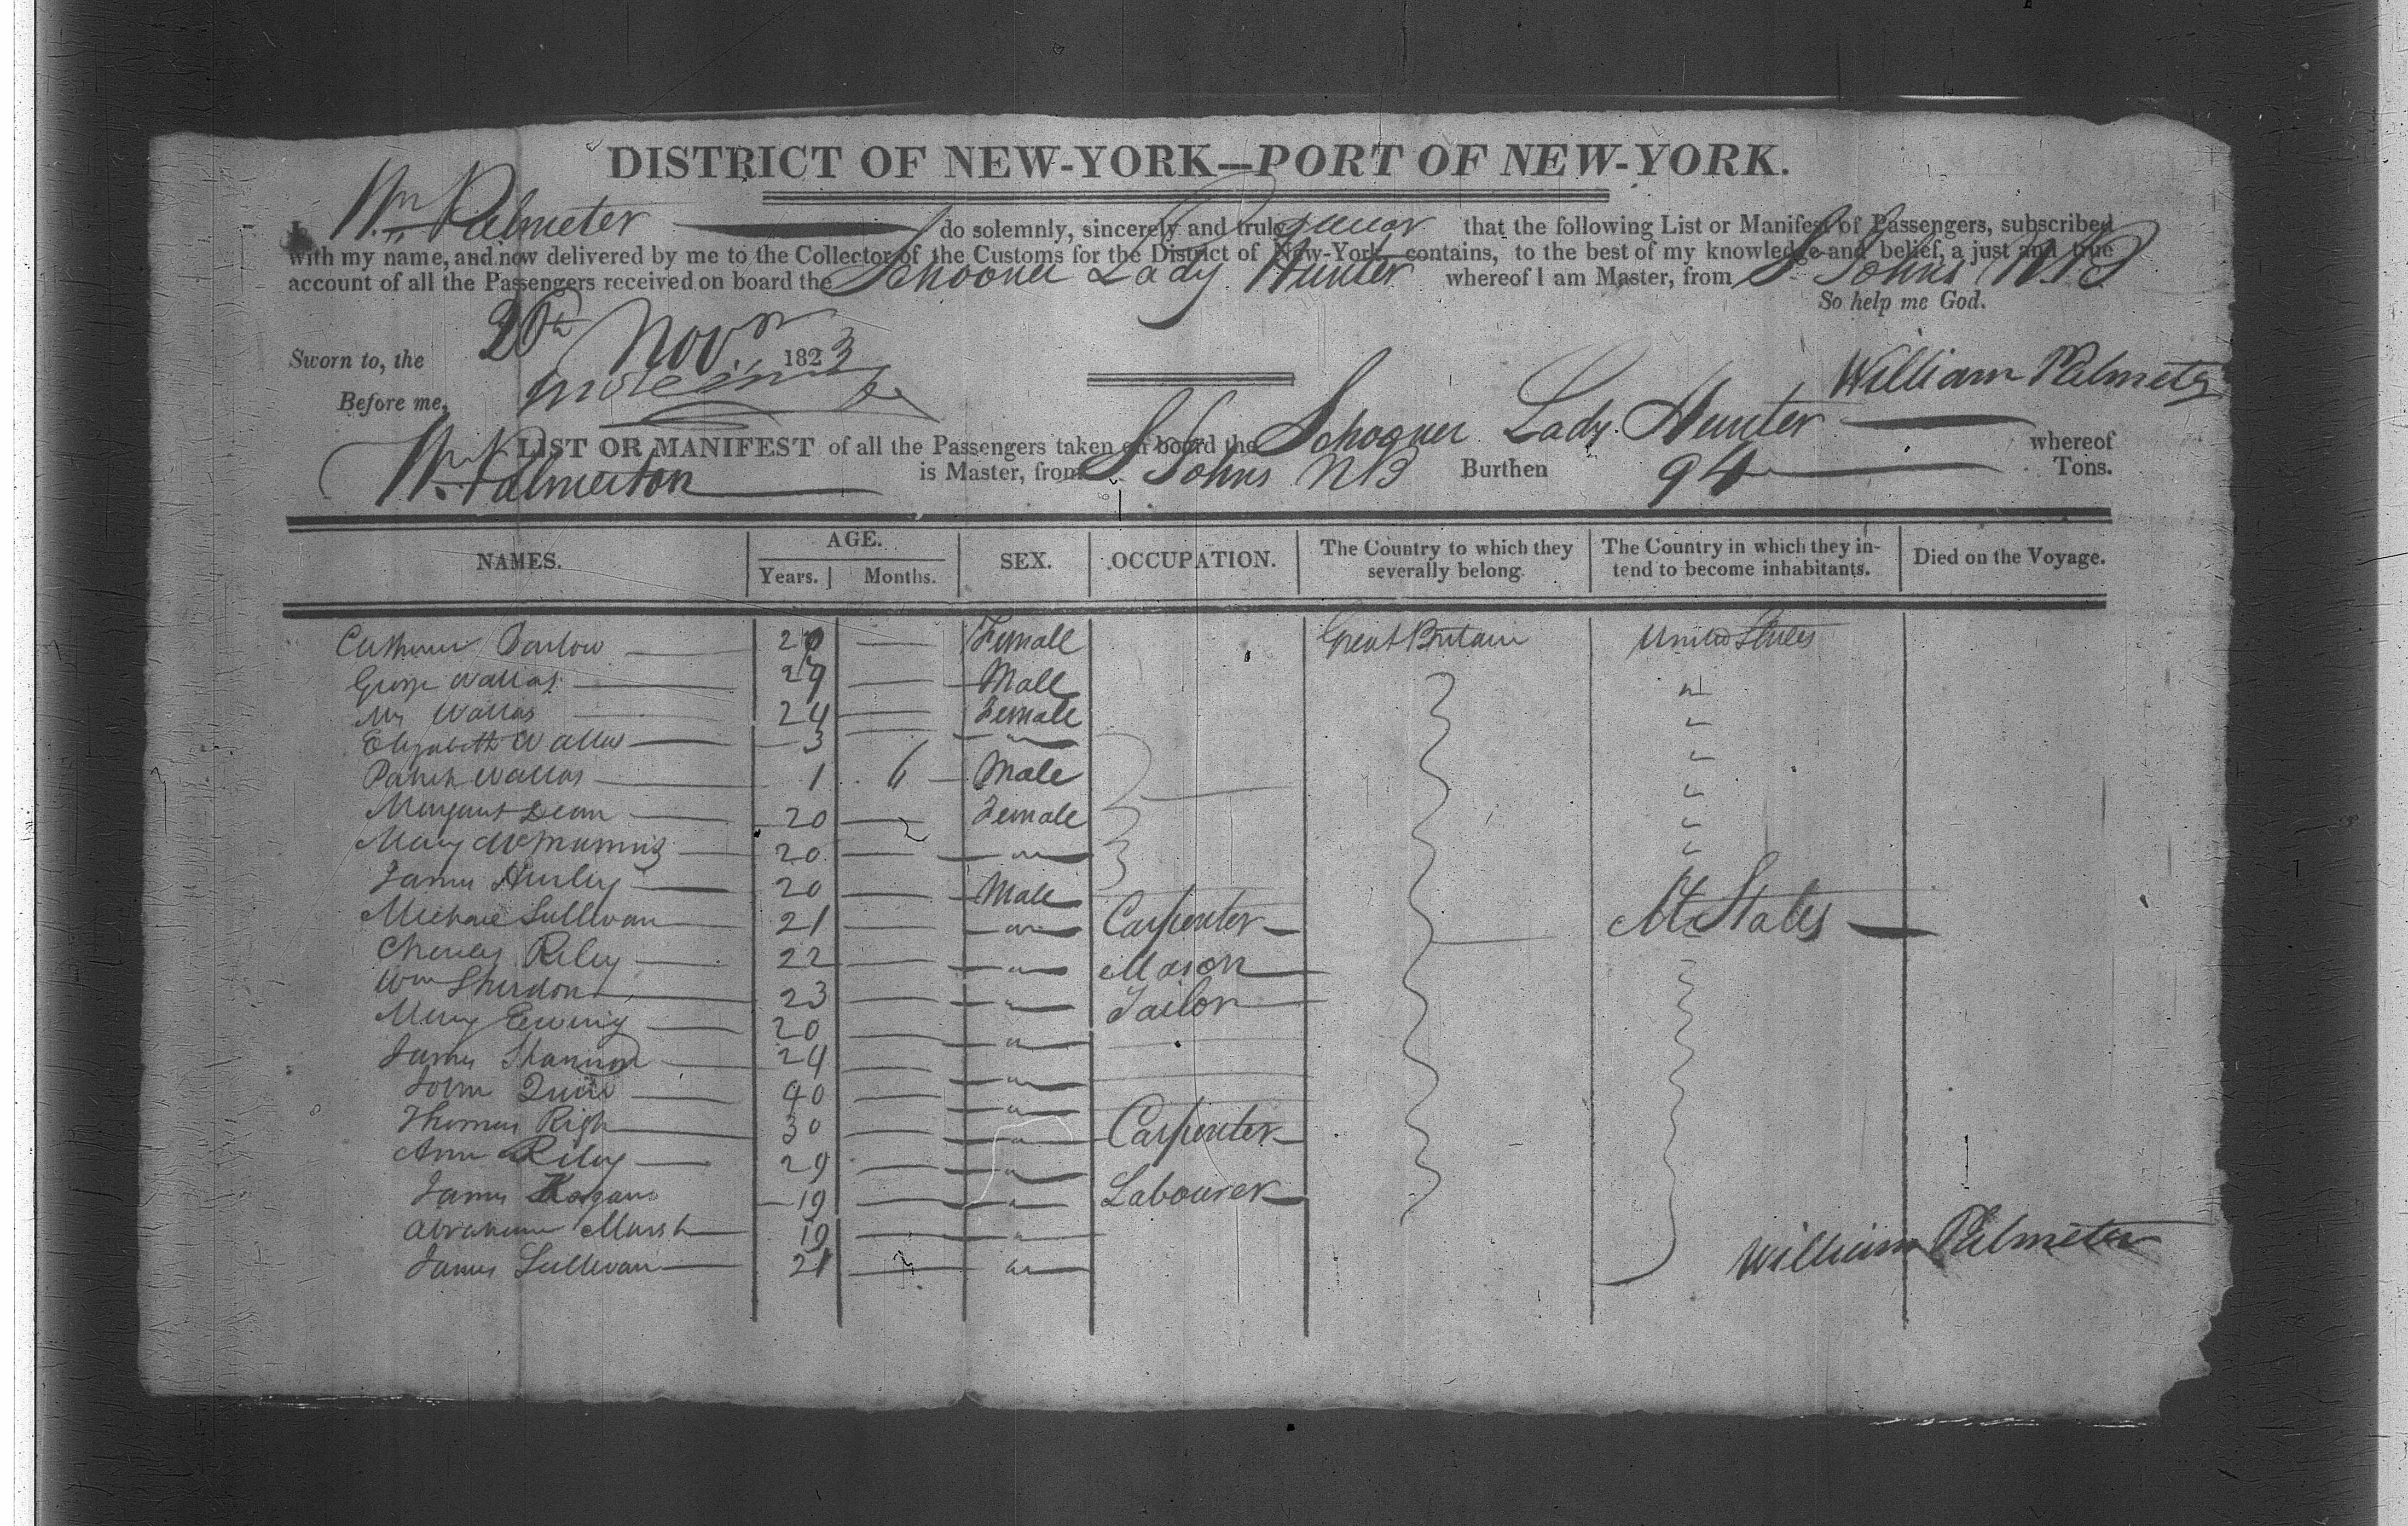 DISTRICT OF NEW-YORK—PORT OF NEW-YORK.
I, Wm Palmeter do solemnly, sincerely and truly swear that the following List or Manifest of Passengers, subscribed
with my name, and now delivered by me to the Collector of the Customs for the District of New-York, contains, to the best of my knowledge and belief, a just and true
account of all the Passengers received on board the Schooner Lady Hunter whereof I am Master, from St Johns NB
So help me God.
Sworn to, the 20th Novr 1823
William Palmeter
Before me,
LIST OR MANIFEST of all the Passengers taken on board the Schooner Lady Hunter whereof
Wm Palmerton is Master, from St Johns NB Burthen 94 Tons.
NAMES. AGE. Years. Months. SEX. OCCUPATION. The Country to which they severally belong. The Country in which they intend to become inhabitants. Died on the Voyage.
Catherine Barlow 20 — Female Great Britain United States
George Wallas — Male "
Mrs Wallas 24 — Female "
Elizabeth Wallas 3 — " "
Patrick Wallas 1 6 Male "
Margaret Dean 20 — Female "
Mary 20 — " "
James Hurley 20 — Male
Michael Sullivan 21 — " Carpenter States
Charles Riley 22 — " Mason
Wm Sheridon 23 — " Tailor
Mary Ewing 20 — "
James Shannon 24 — "
John Quin 40 — "
Thomas Righ 30 — " Carpenter
Ann Riley 29 — "
James 19 — " Labourer
Abraham Marsh 19 — "
James Sullivan 21 — "
William Palmeter